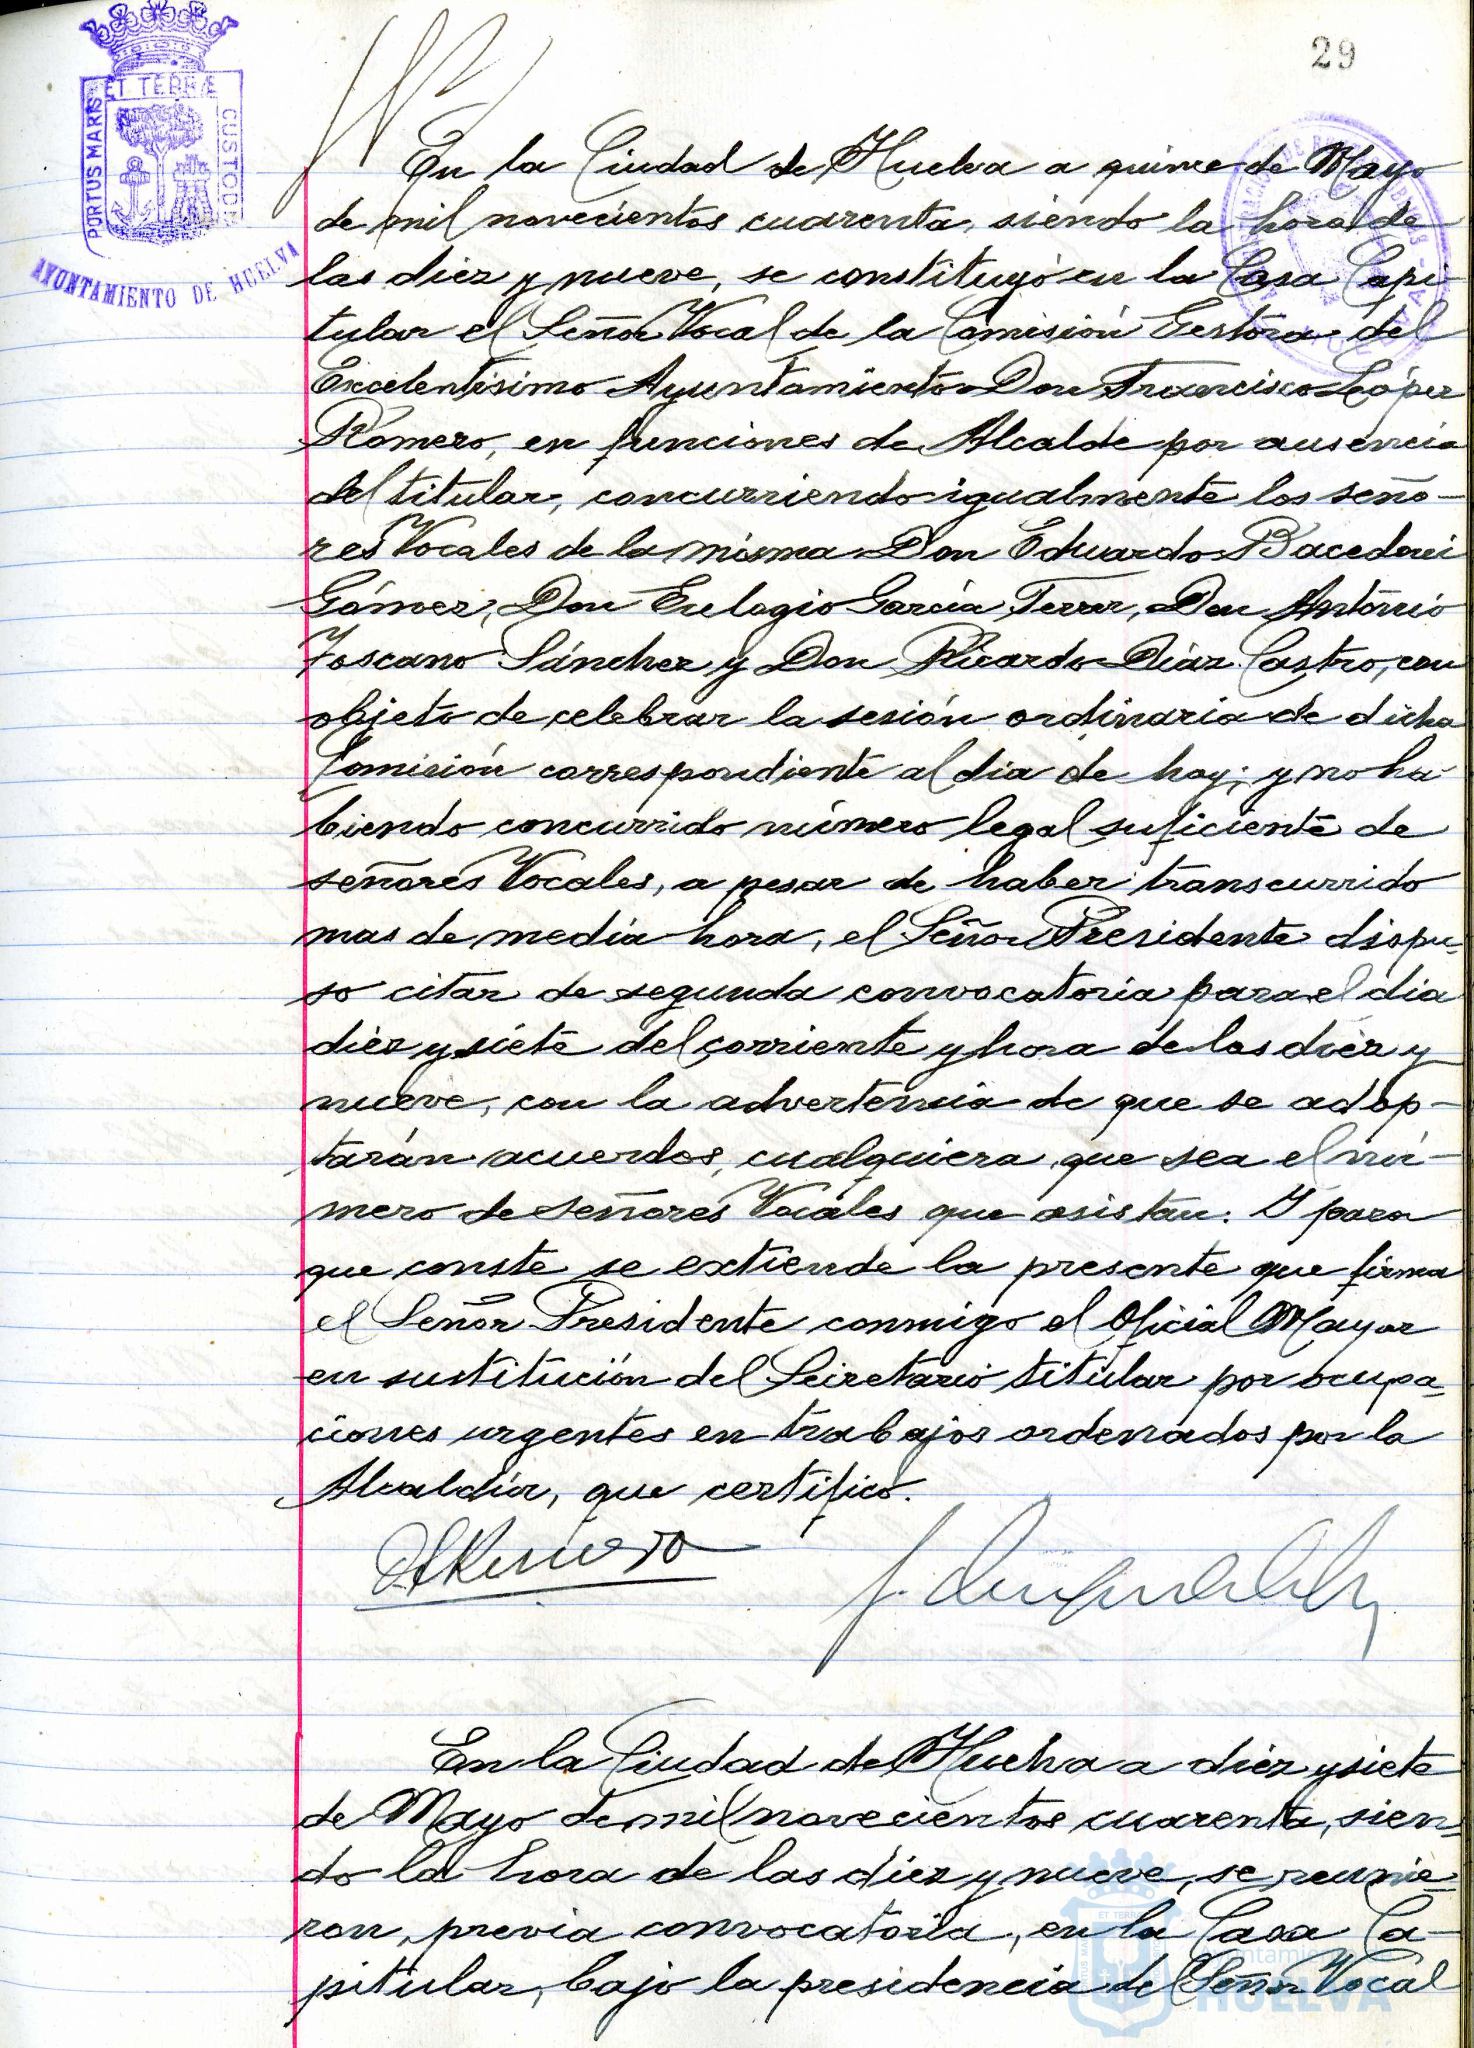 29
ET TERRÆ
PORTUS MARIS
CUSTODIA
AYUNTAMIENTO DE HUELVA
En la Ciudad de Huelva a quince de Mayo
de mil novecientos cuarenta, siendo la hora de
las diez y nueve, se constituyó en la Casa Capi-
tular el Señor Vocal de la Comisión Gestora del
Excelentísimo Ayuntamiento Don Francisco López
Romero, en funciones de Alcalde por ausencia
del titular, concurriendo igualmente los seño-
res Vocales de la misma Don Eduardo
Gómez, Don Eulogio García Ferrer, Don Antonio
Toscano Sánchez y Don Ricardo Díaz Castro, con
objeto de celebrar la sesión ordinaria de dicha
Comisión correspondiente al dia de hoy; y no ha-
biendo concurrido número legal suficiente de
señores Vocales, a pesar de haber transcurrido
mas de media hora, el Señor Presidente dispu-
so citar de segunda convocatoria para el dia
diez y siete del corriente y hora de las diez y
nueve, con la advertencia de que se adop-
tarán acuerdos, cualquiera que sea el nú-
mero de señores Vocales que asistan. Y para
que conste se extiende la presente que firma
el Señor Presidente conmigo el Oficial Mayor
en sustitución del Secretario titular por ocupa-
ciones urgentes en trabajos ordenados por la
Alcaldía, que certifico.
En la Ciudad de Huelva a diez y siete
de Mayo de mil novecientos cuarenta, sien-
do la hora de las diez y nueve, se reunie-
ron, previa convocatoria, en la Casa Ca-
pitular, bajo la presidencia del Señor Vocal
Ayuntamiento de
HUELVA